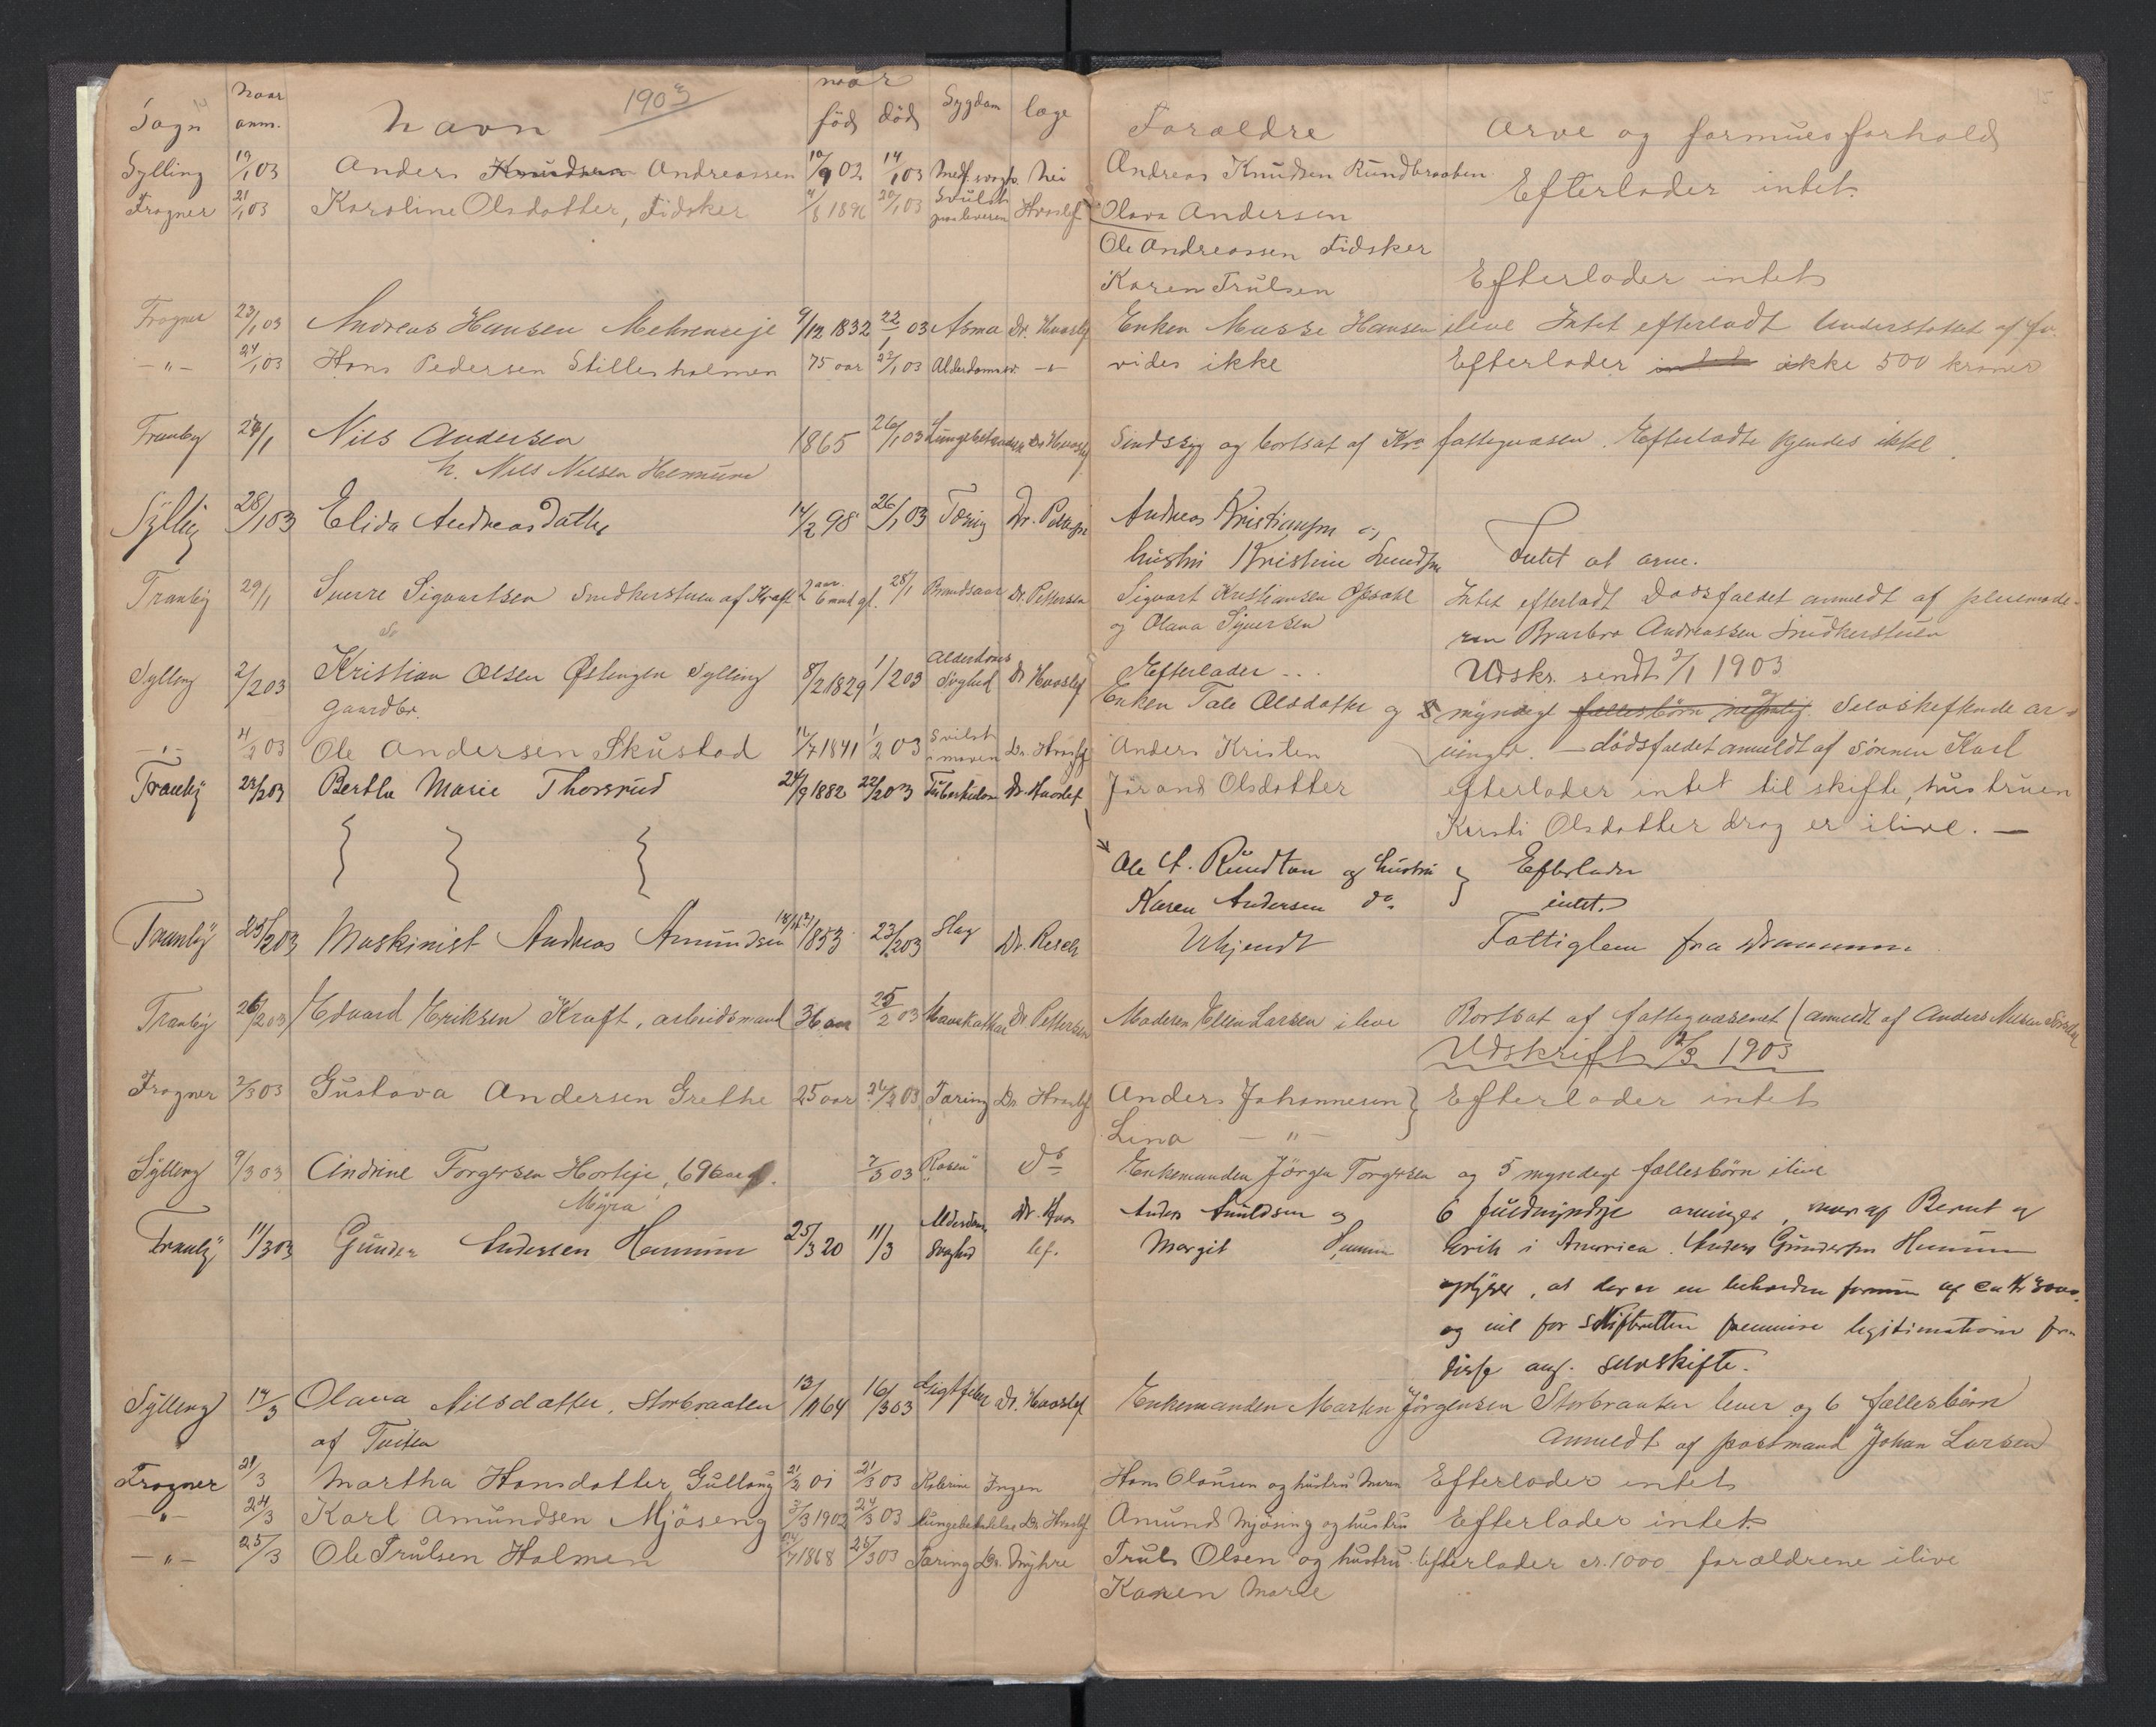 1903
Sogn naar anm. Navn naar föd död Sygdom læge Forældre Arve og formuesforhold
Sylling 19/1 03 Anders Knudsen Andreassen 10/9 02 14/1 03 Medf. svagh. Nei Andreas Knudsen Rundbraaten Efterlader intet.
Frogner 21/1 03 Karoline Olsdatter, Fidsker 1896 20/1 03 Svulst paa leveren Hvoslef Olava Andersen
Ole Andreassen Fidsker
Karen Trulsen Efterlader intet
Frogner 23/1 03 Andreas Hansen Mehreneje 9/12 1832 22/1 03 Asma Dr. Hvoslef Enken Masse Hansen ilive Intet efterladt Understøttet af fv.
— " — 24/1 03 Hans Pedersen Stillesholmen 75 aar 22/1 03 Alderdomssv. — " — vides ikke Efterlader intet ikke 500 kroner
Tranby 27/1 Nils Andersen 1865 26/1 03 Lungebetændelse Dr Hvoslef Sindssyg og bortsat af Kra fattigvæsen. Efterladte kjendes ikke.
h. Nils Nilsen Hennum
Sylling 28/1 03 Elida Andreasdatter 14/2 98 26/1 03 Tæring Dr. Pettersen Andreas Kristiansen og
hustru Kristine Intet at arve.
Tranby 29/1 Sverre Sigvartsen Snedkerstuen af Kraft 2 aar 6 mnd gl. 28/1 Brandsaar Dr. Pettersen Sigvart Kristiansen Opsahl Intet efterladt Dødsfaldet anmeldt af pleiemode-
og Olava Syversen ren Barbro Andreassen Snedkerstuen
Sylling 2/2 03 Kristian Olsen Østengen Sylling 8/2 1829 1/2 03 Alderdoms Svaghed Dr Hvoslef Efterlader ... Udskr. sendt 1903
Gaardbr. Enken Tale Olsdatter og 5 myndige fællesbörn Selvskiftende ar-
— " — 4/2 03 Ole Andersen Skustad 1841 1/2 03 Svulst i maven Dr. Hvoslef Anders Kristen vinger. — dödsfaldet anmeldt af sönnen Karl
Tranby 24/2 03 Berthe Marie Thorsrud 24/9 1882 22/2 03 Tuberkulose Dr. Hvoslef Jörand Olsdatter efterlader intet til skifte, hustruen
Kirsti Olsdatter drog er ilive. —
Ole A. Rundtom og hustru } Efterlader
Karen Andersen do intet.
Tranby 25/2 03 Maskinist Andreas Amundsen 1853 23/2 03 Slag Dr. Resch Ukjendt Fattiglem fra Drammen.
Tranby 26/2 03 Edvard Eriksen Kraft, arbeidsmand 36 aar 25/2 03 Mavekatar Dr Pettersen Moderen Ellen Larsen ilive Bortsat af fattigvæsenet (anmeldt af Anders Nilsen
Udskrift 2/3 1903
Frogner 2/3 03 Gustava Andersen Grethe 25 aar 26/2 03 Tæring Dr. Hvoslef Anders Johannesen } Efterlader intet
Lina — " —
Sylling 9/3 03 Andrine Torgersen Horteje, 69 aar. 7/3 03 Rosen do Enkemanden Jörgen Torgersen og 5 myndige fællesbörn ilive
Myra
Tranby 11/3 03 Gunder Andersen Hennum 25/3 20 11/3 Alderdoms svaghed Dr. Hvoslef. Anders Amundsen og 6 fuldmyndige arvinger, hvoraf Bernt og
Margit Hennum Erik i America. Anders Gundersen Hennum
oplyser, at der er en beholden formue af ca Kr 3000.
og vil for skifteretten fremvise legitimation fra
disse ang. selvskifte.
Sylling 17/3 Olava Nilsdatter, Storbraaten 13/11 64 16/3 03 Gigtfeber Dr. Hvoslef Enkemanden Martin Jörgensen Storbraaten lever og 6 fællesbörn
af Tveiten Anmeldt af postmand Johan Larsen
Frogner 21/3 Martha Hansdatter Gullaug 21/2 01 21/3 03 Kolerine Ingen Hans Olausen og hustru Maren Efterlader intet
— " — 24/3 Karl Amundsen Mjöseng 3/3 1902 24/3 03 lungebetendelse Dr. Hvoslef Amund Mjösing og hustru Efterlader intet.
— " — 25/3 Ole Trulsen Holmen 1868 25/3 03 Tæring Dr. Myhre Truls Olsen og hustru efterlader cr. 1000 forældrene ilive
Karen Marie